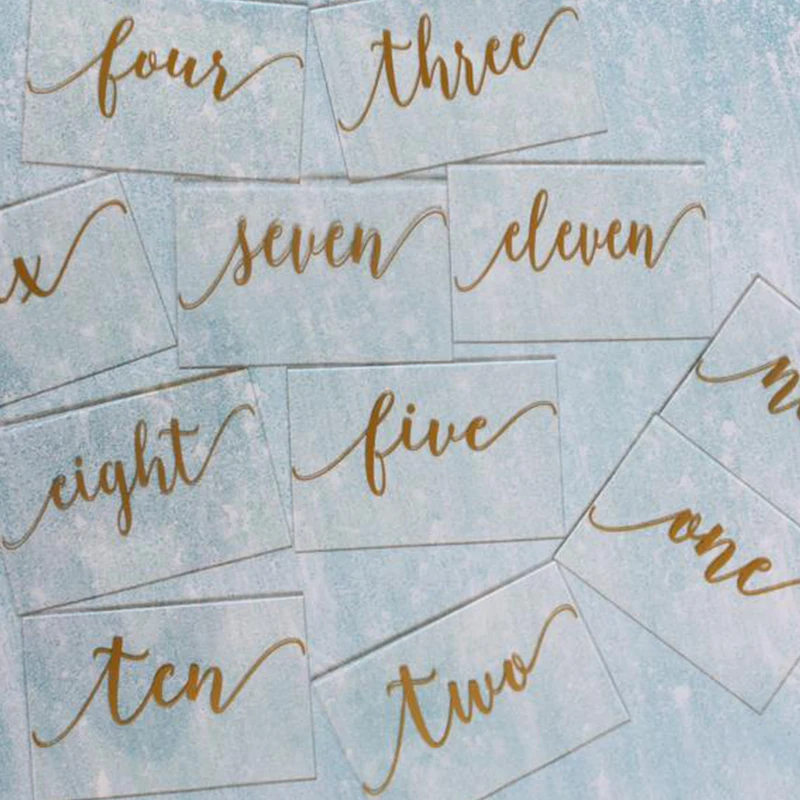 four
three
x
seven
eleven
eight
five
one
ten
two